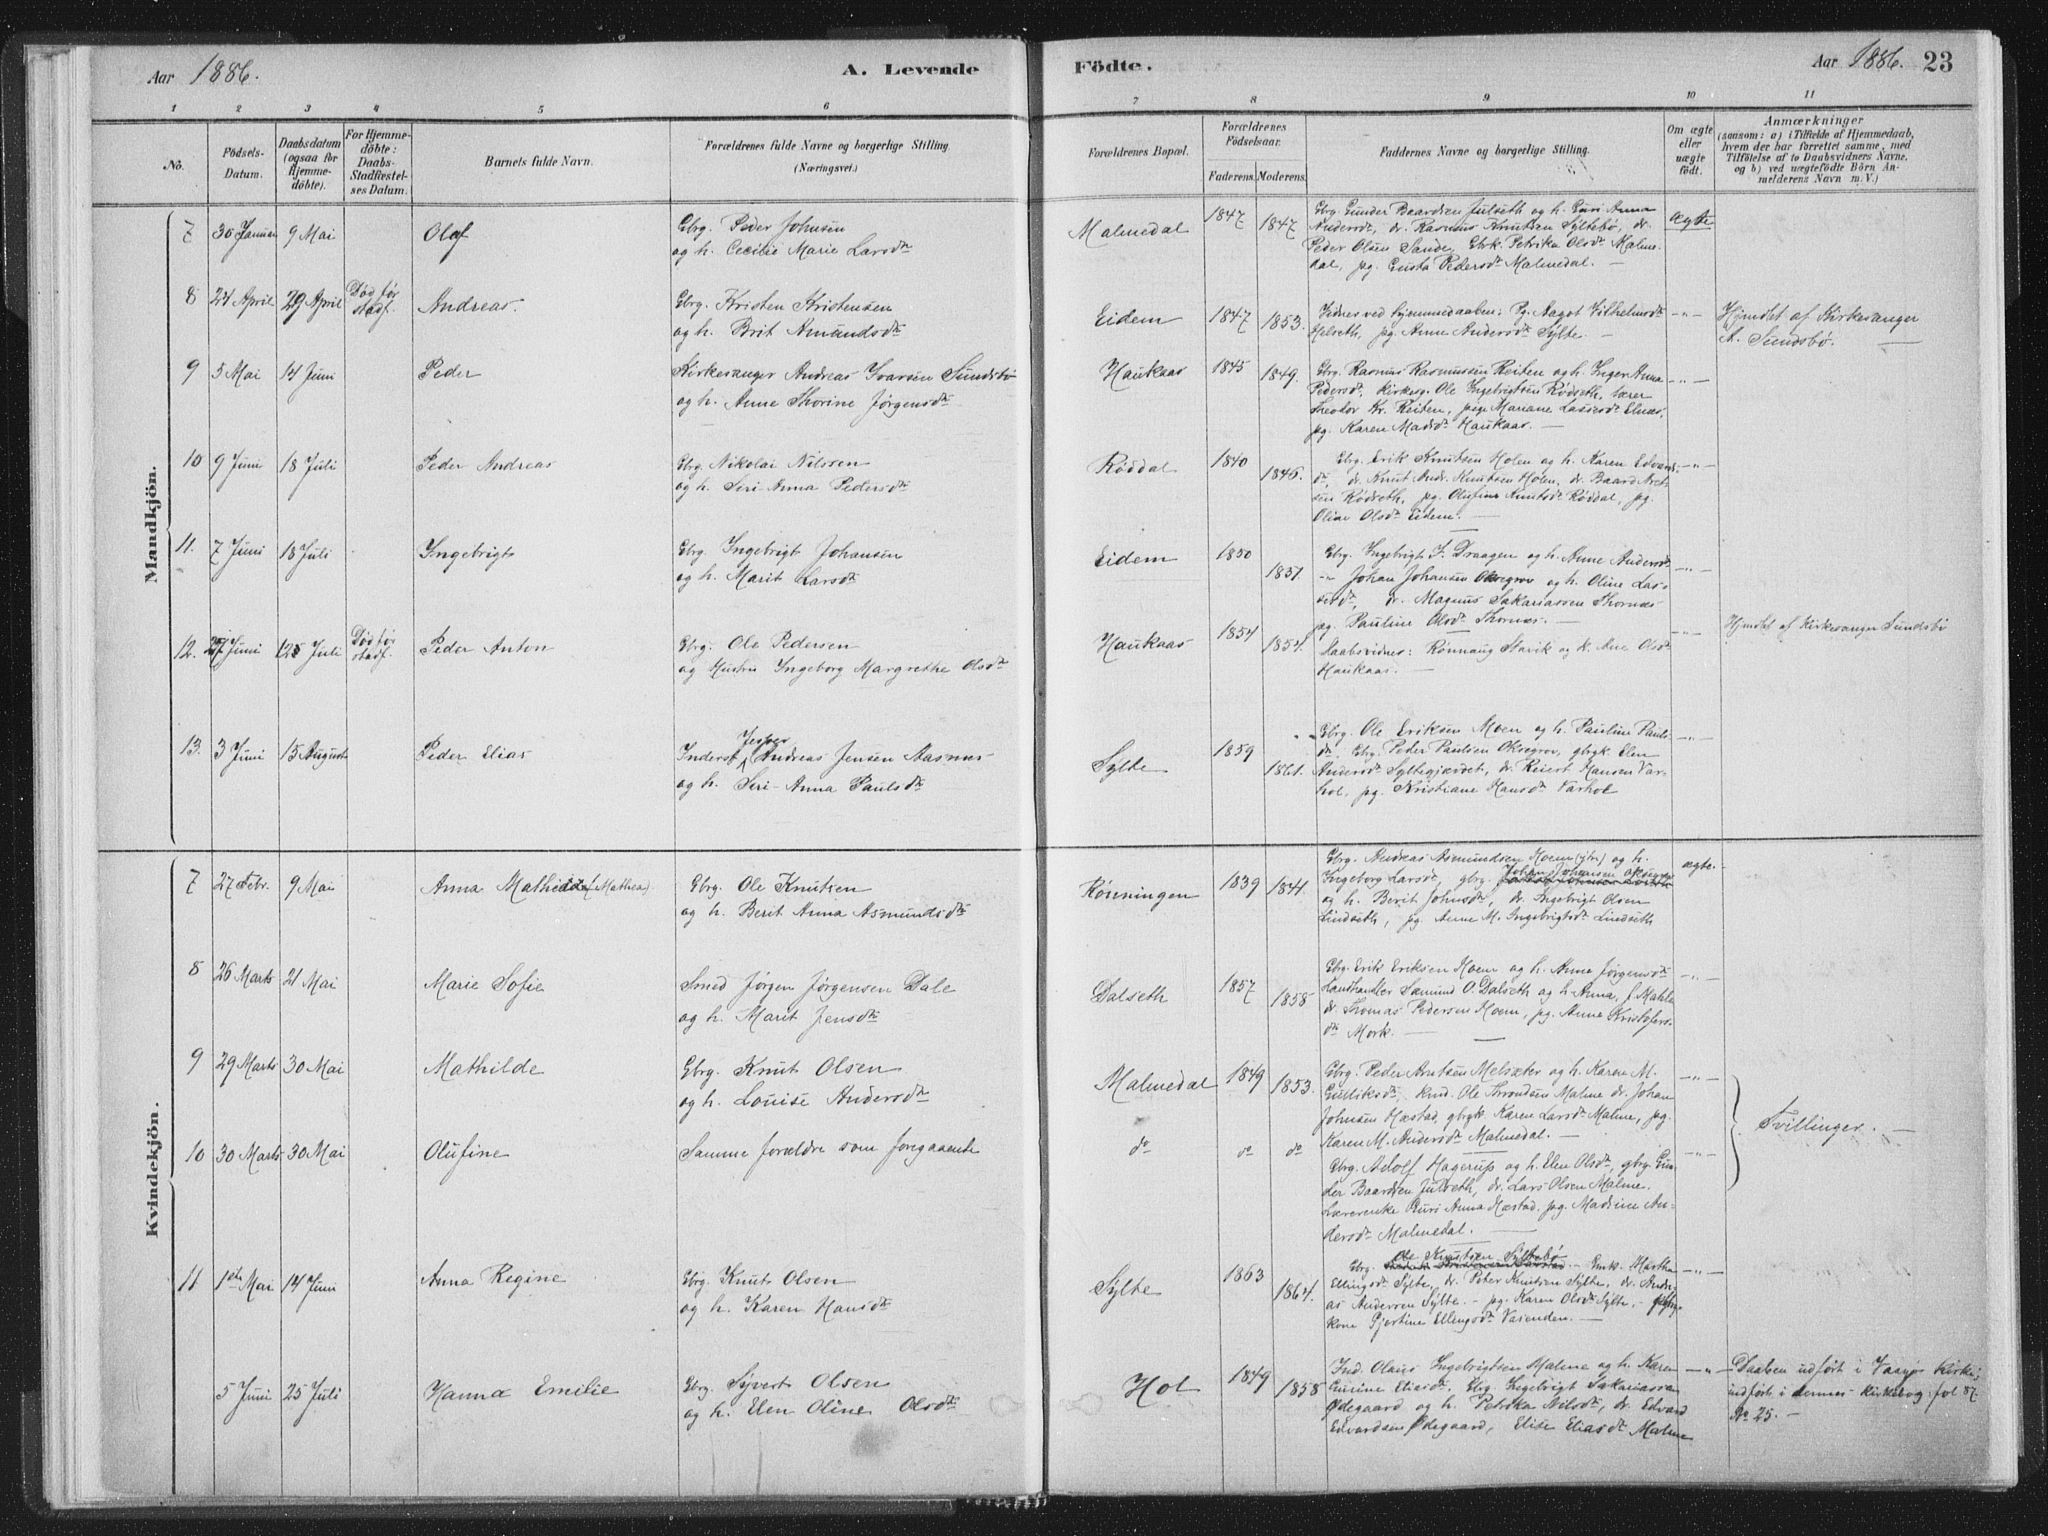 Aar 1886.
A. Levende
Födte.
Aar 1886. 23
1 2 3 4 5 6 7 8 9 10 11
No.
Födsels-
Datum.
Daabsdatum
(ogsaa for
Hjemme-
döbte).
For Hjemme-
döbte:
Daabs-
Stadfæstel-
ses Datum.
Barnets fulde Navn.
Forældrenes fulde Navne og borgerlige Stilling.
(Næringsvei.)
Forældrenes Bopæl.
Forældrenes
Födselsaar.
Faderens. Moderens.
Faddernes Navne og borgerlige Stilling.
Om ægte
eller
uægte
födt.
Anmærkninger
(saasom: a) i Tilfælde af Hjemmedaab,
hvem der har forrettet samme, med
Tilföielse af to Daabsvidners Navne,
og b) ved uægtefödte Börn An-
melderens Navn m. V.)
Mandkjön.
7 30 Januar 9 Mai Olaf
Gbrg. Peder Johnsen
og h. Cecilie Marie Larsdtr
Malmedal 1847 1847
Gbrg. Gunder Baardsen Julseth og h. Guri Anna
Andersdtr, dr. Rasmus Knutsen Syltebø, dr.
Peder Olsen Sande, Gbrk. Petrike Olsdtr Malme-
dal, pg. Gusta Pedersdtr Malmedal. —
Ægte
8 24 April 29 April Død før
stadf. Andreas.
Gbrg. Kristen Kristensen
og h. Brit Amundsdtr
Eidem 1847 1853.
Vidner ved hjemmedaaben: Pg. Aagot Vilhelmsdtr
Helseth, pg. Anne Andersdtr Sylte —
—"—
Hjmdbt af Kirkesanger
A. Sundsbö. —
9 5 Mai 14 Juni Peder
Kirkesanger Andreas Ivarsen Sundsbö
og h. Anne Thorine Jørgensdtr
Haukaas 1845 1849.
Gbrg. Rasmus Rasmussen Reiten og h. Inger Anna
Pedersdtr, kirkesg. Ole Ingebrigtsen Rødseth, lærer
Theodor Kr. Reiten, pige Mariane Lassesdtr Elnæs,
pg. Karen Madsdtr Haukaas. —
—"—
10 9 Juni 18 Juli Peder Andreas
Gbrg. Nikolai Nilssen
og h. Seri Anna Pedersdtr
Røddal 1840 1846.
Gbrg. Erik Knutsen Holen og h. Karen Edvards-
dtr, dr. Knut Andr. Knutsen Holen, dr. Baard Aret-
sen Rödseth, pg. Olufine Knutsdtr Røddal, pg.
Oline Olsdtr Eidem. —
—"—
11. 7 Juni 18 Juli Ingebrigt
Gbrg. Ingebrigt Johansen
og h. Marit Larsdtr
Eidem 1850 1851.
Gbrg. Ingebrigt J. Draagen og h. Anne Andersdtr
—"— Johan Johansen Oksegrov og h. Oline Las-
sesdtr, dr. Magnus Sakariassen Thornæs
pg. Pauline Olsdtr Thornæs. —
—"—
12. 27 Juni 25 Juli Død før
stadf. Peder Anton
Gbrg. Ole Pedersen
og Hustru Ingeborg Margrethe Olsdtr
Haukaas 1854 1854.
Daabsvidner: Rønnaug Stavik og k. Ane Olsdtr
Haukaas. —
—"—
Hjmdbt af Kirkesanger Sundsbö
13. 3 Juni 15 August Peder Elias
Jesper
Inderst Andreas Jensen Aasnæs
og h. Seri-Anna Paulsdtr
Sylte 1859 1861.
Gbrg. Ole Eriksen Moen og h. Pauline Pauls-
dtr, Gbrg. Peder Paulsen Oksegrov, gbrgk Elen
Andersdtr Syltegjærdet, dr. Reiert Hansen Var-
hol, pg. Kristiane Hansdtr Varhol
—"—
Kvindekjön.
7 27 Febr. 9 Mai Anna (Mathea)
Gbrg. Ole Knutsen
og h. Berit Anna Asmundsdtr
Rønningen 1839 1841.
Gbrg. Andreas Asmundsen Hoem og h.
Ingeborg Larsdtr, gbrg. Johan Johansen Oksegrov
og h. Berit Johnsdtr, dr. Ingebrigt Olsen
Lindseth, pg. Anne M. Ingebrigtsdtr Lindseth
ægte.
8 26 Marts 21 Mai Marie Sofie
Smed Jørgen Jørgensen Dale
og h. Marit Jensdtr
Dalseth 1857 1858
Gbrg. Erik Eriksen Hoem og h. Anna Jørgensdtr
Landhandler Samund O. Dalseth og h. Anna, f. Mahle
dr. Thomas Pedersen Hoem, pg. Anne Kristofers-
dtr Mork. —
—"—
9 29 Marts 30 Mai Mathilde
Gbrg. Knut Olsen
og h. Louise Andersdtr
Malmedal 1849 1853.
Gbrg. Peder Knutsen Melsæter og h. Karen M.
Gulliksdtr, kmd. Ole Trondsen Malme dr. Johan
Johnsen Hæstad, gbrgk. Karen Larsdtr Malme, pg.
Karen M. Andersdtr Malmedal. —
—"—
Tvillinger. —
10 30 Marts 30 Mai Olufine
Samme forældre som foregaaende
do do do
Gbrg. Adolf Hagerup og h. Elen Olsdtr, gbrg. Gun-
der Baardsen Julseth, dr. Lars Olsen Malme.
Lærerenke Guri Anna Hæstad, pg. Madsine An-
dersdtr Malmedal. —
—"—
11 1ste Mai 14 Juni Anna Regine
Gbrg. Knut Olsen
og h. Karen Hansdtr
Sylte 1863 1864.
Ole Knutsen Syltebö
Gbrg. — Enk. Martha
Ellingsdtr Sylte, dr. Peter Knutsen Sylte, dr. Andre-
as Andersen Sylte. — pg. Karen Olsdtr Sylte. —
kone Gjertine Ellingsdtr Vasenden. —
—"—
5 Juni 25 Juli Hanna Emilie
Gbrg. Syvert Olsen
og h. Elen Oline Olsdtr
Hol 1849 1858
Ind. Olaus Ingebrigtsen Malme og h. Karen
Gurine Eliasdtr, Gbrg. Ingebrigt Sakariassen
Ødegaard og h. Petrika Nilsdtr, dr. Edvard
Edvardsen Ødegaard, Elise Eliasdtr Malme
—"—
Daaben udført i Vaagø Kirke;
indført i dennes kirkebog fol 87.
No 25. —